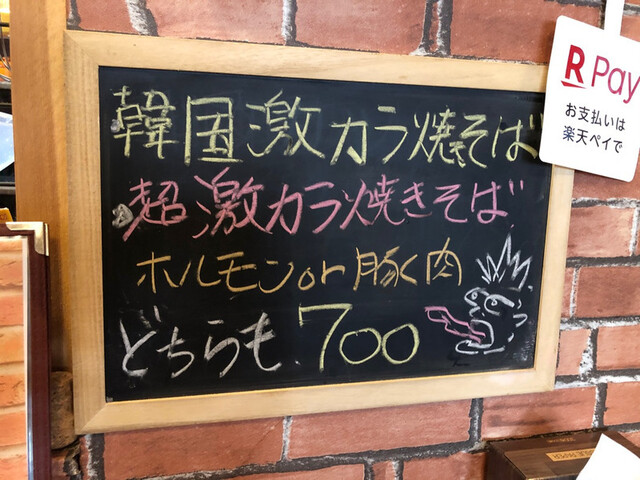 韓国激カラ焼そば
超激カラ焼きそば
ホルモンor豚く肉
どちらも.700
R Pay
お支払いは
楽天ペイで